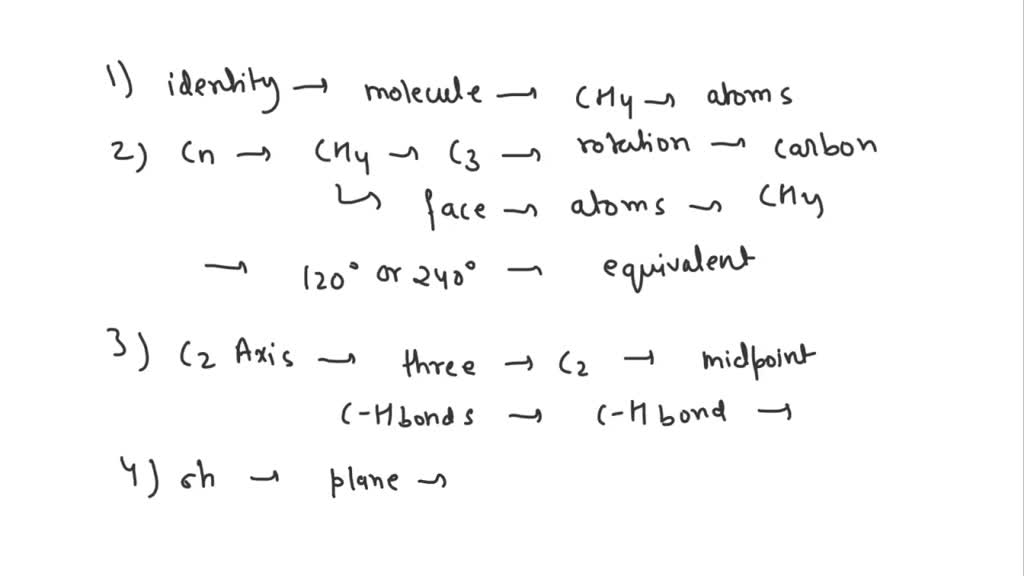 1) identity → molecule → CH4 → atoms
2) Cn → CH4 → C3 → rotation → carbon
↳ face → atoms → CH4
→ 120° or 240° → equivalent
3) C2 Axis → three → C2 → midpoint
C-H bonds → C-H bond →
4) σh → plane →